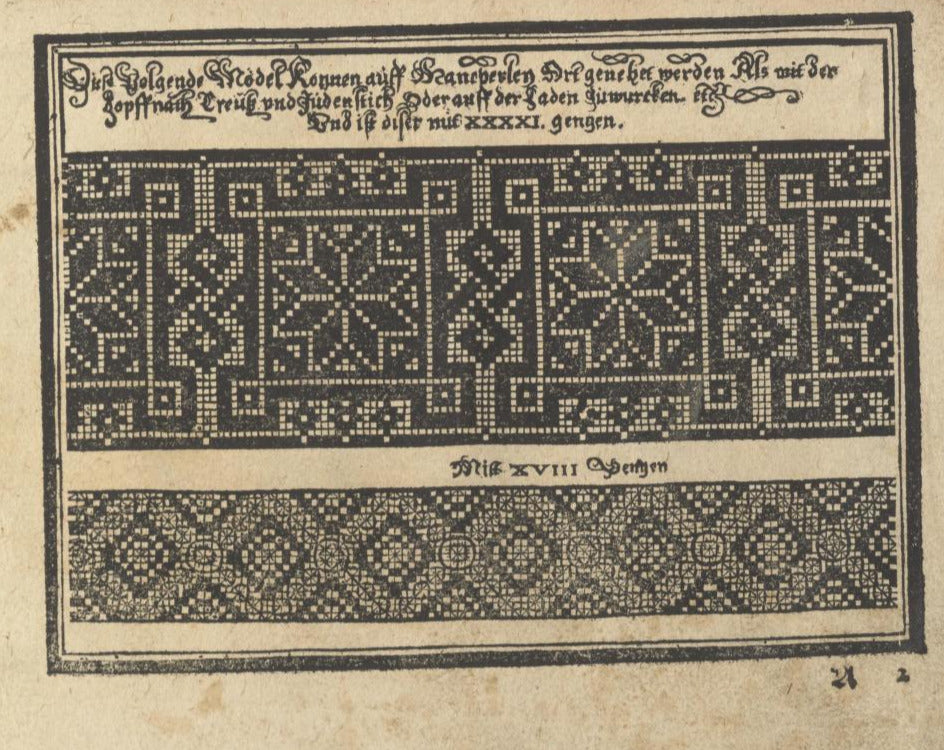 Diese Volgende Model Konnen auff Mancherley Art genehet werden Als mit der
Zopffnath Creütz vnd Judenstich Oder auff der Laden zuwurcken. etc
Vnd ist diser mit XXXXI. gengen.
Mitt XVIII Gengen
A 2